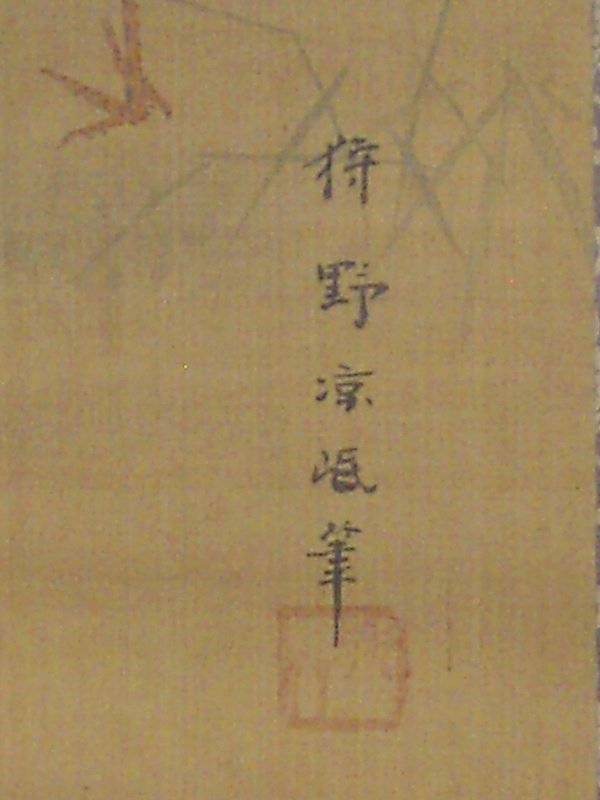 狩野凉岷筆